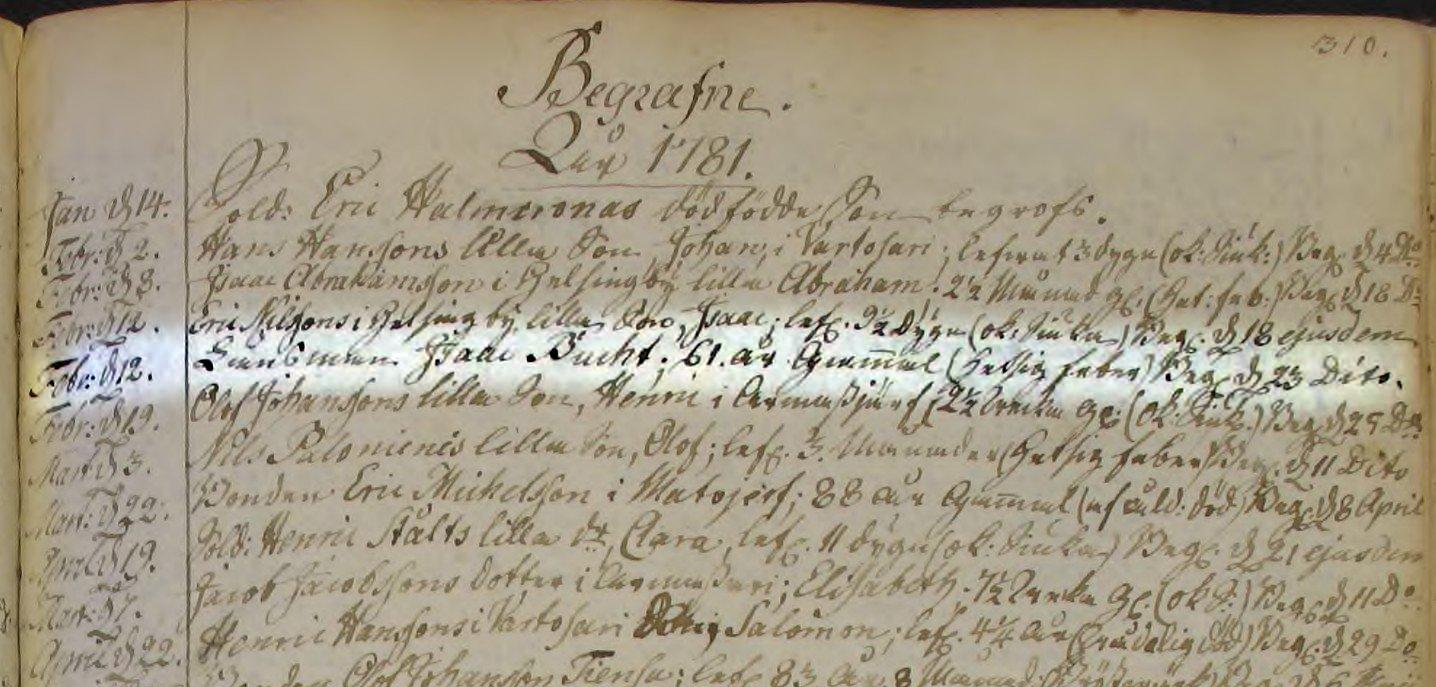 310.
Begrafne.
År 1781.
Jan d 14. Sold: Eric Halmeronas dödfödde Son begrofs.
Febr: d 2. Hans Hanssons lilla Son, Johan, i Vartosari; lefwat 3 dygn (ok: Siuk:) Beg. d 4 Do
Febr: d 8. Isaac Abrahamsson i Helsingby lilla Abraham. 2½ Månad gl. (Het: feb:) Beg. d 18 Do
Febr: d 12. Eric Nilssons i Helsingby lilla Son, Isaac; lef. 9½ dygn (ok: Siuka) Beg. d 18 ejusdem
Febr: d 12. Länsman Isaac Bucht; 61. år Gammal (Hetsig feber) Beg. d 23 Dito.
Febr: d 19. Olof Johanssons lilla Son, Henric i Armassjärf, 2½ Wecka gl: (ok: Siuk:) Beg. d 25 Do
Mart d 3. Nils Palonienis lilla Son, Olof; lef. 3. Månader (Hetsig feber) Beg. d 11 Dito
Mart: d 22. Bonden Eric Michelsson i Matojerf; 88 år Gammal (af åld: död) Beg. d 8 April
April d 19. Sold: Henric Stålts lilla dr, Clara, lef. 11 dygn (ok: Siuka) Beg. d 21 ejusdem
Mar: d 7. Jacob Jacobssons dotter i Armassari; Elisabeth. 7½ Wecka gl. (ok S:) Beg. d 11 Do
April d 22. Henric Hanssons i Vartosari Salomon; lef. 4¼ år (wådelig död) Beg. d 29 Do
Bonden Olof Johansson Tiensu; lef. 83 år 8 Månad: